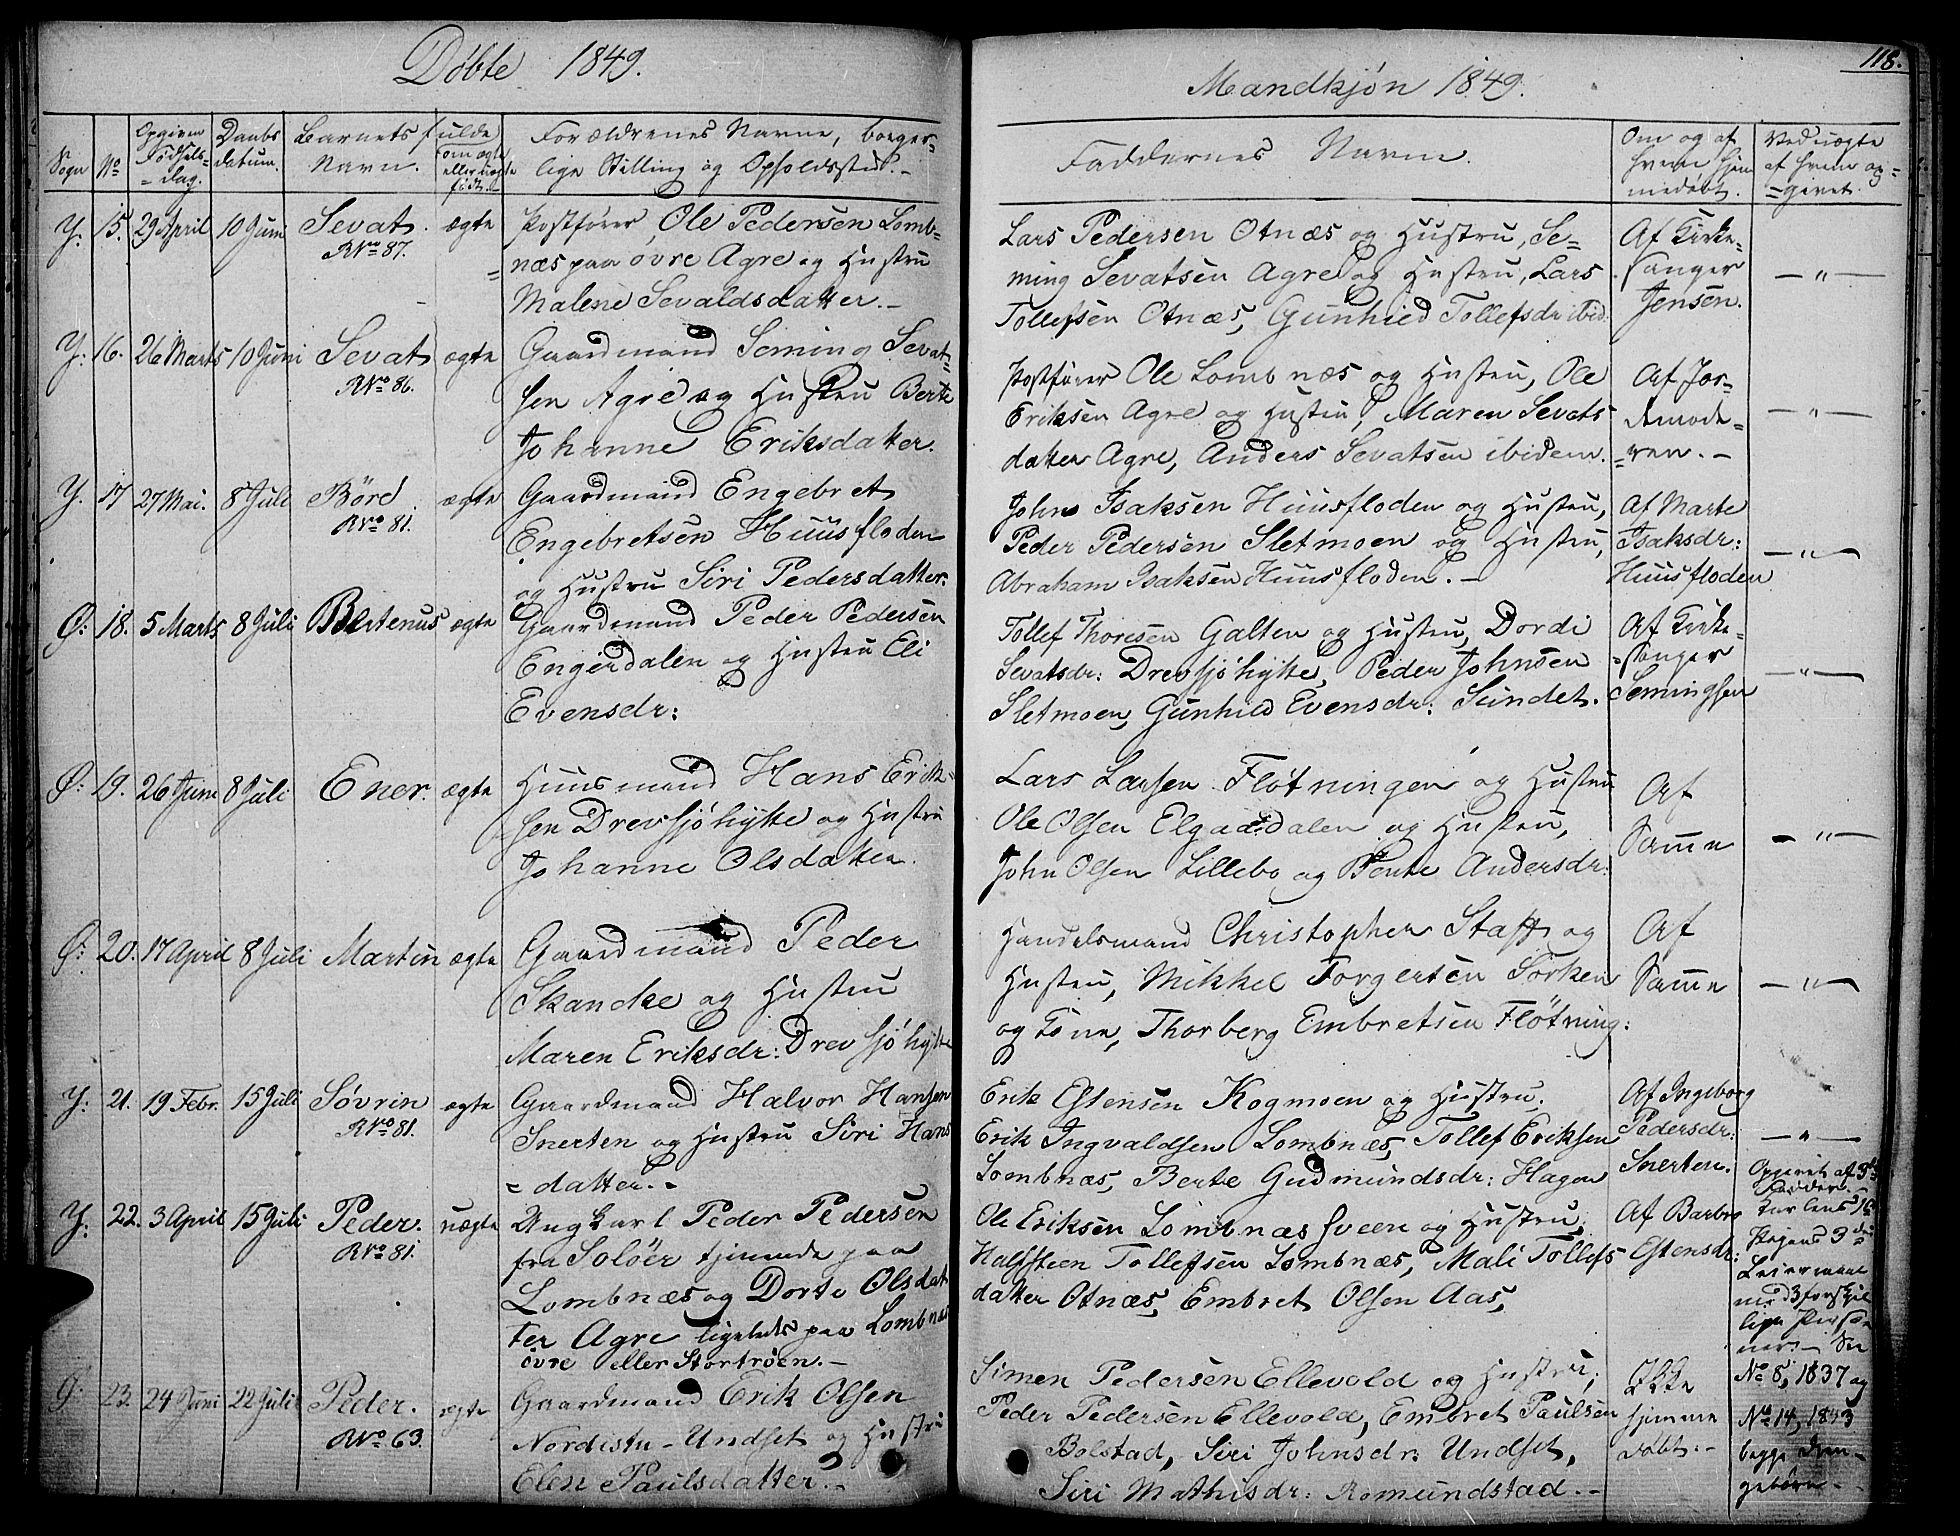 Döbte 1849.
Sogn
No
Opgiven Födsels-dag.
Daabs datum.
Barnets fulde Navn.
om ægte eller uægte födt.
Forældrenes Navne, borger-
lige Stilling og Opholdssted.
Y: 15. 29 April 10 Juni Sevat. ægte Postförer Ole Pedersen Lomb-
RNo 87. næs paa övre Agre og Hustru
Malene Sevaldsdatter.
Y: 16. 26 Marts 10 Juni Sevat ægte Gaardmand Seming Sevat-
RNo 86. sen Agre og Hustru Berte
Johanne Eriksdatter.
Y. 17 27 Mai. 8 Juli Börd ægte Gaardmand Engebret
RNo 81. Engebretsen Huusfloden
og Hustru Siri Pedersdatter.
Ø: 18. 5 Marts 8 Juli Bertenus ægte Gaardmand Peder Pedersen
Engerdalen og Hustru Eli
Evensdr:
Ø: 19. 26 Juni 8 Juli Ener. ægte Huusmand Hans Erik-
sen Drevsjöhytte og Hustru
Johanne Olsdatter.
Ø: 20. 17 April 8 Juli Martin ægte Gaardmand Peder
Skancke og Hustru
Maren Eriksdr: Drevsjöhytte
Y: 21. 19 Febr. 15 Juli Sövrin ægte Gaardmand Halvor Hansen
RNo 81. Snerten og Hustru Siri Hans
=datter.-
Y: 22. 3 April 15 Juli Peder. uægte Ungkarl Peder Pedersen
RNo 81. fra Solöer tjenende paa
Lombnæs og Dorte Olsdat
ter Agre ligeledes paa Lombnæs
övre eller Stortröen.-
Ø: 23. 24 Juni 22 Juli Peder. ægte Gaardmand Erik Olsen
RNo 63. Nordistu-Undset og Hustru
Elen Paulsdatter.-
Mandkjön 1849.
118.
Faddernes Navne.
Om og af hvem hjem medöbt.
Ved uægte af hvem op-givet.
Lars Pedersen Otnæs og Hustru, Se= Af Kirke-
ming Sevatsen Agre og Hustru, Lars sanger - " -
Tollefsen Otnæs, Gunhild Tollefsdr ibid: Jensen.
Postförer Ole Lombnæs og Hustru, Ole Af Jor-
Eriksen Agre og Hustru, Maren Sevats demode- - " -
datter Agre, Anders Sevatsen ibidem. =ren.-
John Isaksen Huusfloden og Hustru, Af Marte
Peder Pedersen Sletmoen og Hustru, Isaksdr: - " -
Abraham Isaksen Huusfloden.- Huusfloden
Tollef Thoresen Galten og Hustru, Dordi Af Kirke-
Sevatsdr: Drevsjöhytte, Peder Johnsen =sanger - " -
Sletmoen, Gunhild Evensdr: Sundet. Semingsen
Lars Larsen Flötningen og Hustru Af
Ole Olsen Elgaadalen og Hustru, Samme - " -
John Olsen Lillebo og Bente Andersdr:
Handelsmand Christopher Staff og Af
Hustru, Mikkel Torgersen Sörken Samme - " -
og Kone, Thorberg Embretsen Flötning:
Erik Estensen Kogmoen og Hustru. Af Ingeborg
Erik Ingvaldsen Lombnæs, Tollef Eriksen Pedersdr: - " -
Lombnæs, Berte Gudmundsdr: Hagen Snerten.
Ole Eriksen Lombnæs Sveen og Hustru, Af Barbro
Halfsteen Tollefsen Lombnæs, Mali Tollefs Estensdr:
datter Otnæs, Embret Olsen Aas,
Opgivet af
Pigens 3die
Leiermaal
med 3 forskjel
lige Perso
ner. - Se
No 8, 1837 og
No 14, 1843
begge Dren-
gebörn.-
Simen Pedersen Ellevold og Hustru, Ikke
Peder Pedersen Ellevold, Embret Paulsen hjemme
Bolstad, Siri Johnsdr: Undset, döbt.-
Siri Mathisdr: Romundstad.-